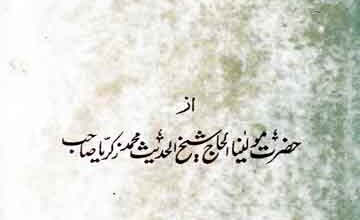 از
حضرت مولٰینا الحاج شیخ الحدیث محمد زکریا صاحب